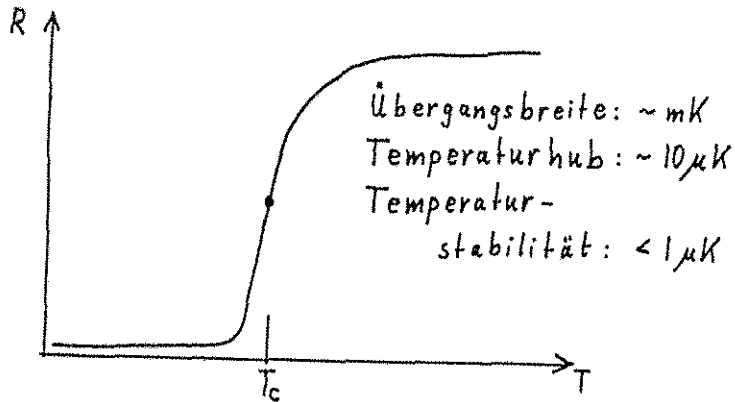 R
Übergangsbreite: ~ mK
Temperaturhub: ~ 10 μK
Temperatur-
stabilität: < 1 μK
Tc
T